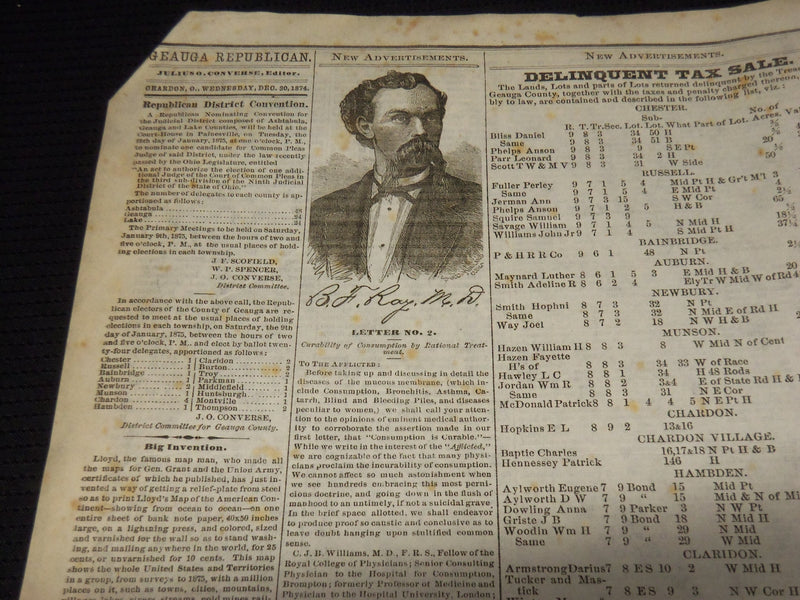 GEAUGA REPUBLICAN.
JULIUS O. CONVERSE, Editor.
CHARDON, O., WEDNESDAY, DEC. 30, 1874.
Republican District Convention.
A Republican Nominating Convention for
the Judicial District composed of Ashtabula,
Geauga and Lake Counties, will be held at the
Court-House in Painesville on Tuesday, the
day of January, 1875, at one o'clock, P. M.,
to nominate one candidate for Common Pleas
Judge of said District, under the law recently
passed by the Ohio Legislature, entitled
"An act to authorize the election of one addi-
tional Judge of the Court of Common Pleas in
the third sub-division of the Ninth Judicial
District of the State of Ohio."
The number of delegates to each county is ap-
portioned as follows:
Ashtabula
Geauga
Lake
The Primary Meetings to be held on Saturday,
January 9th, 1875, between the hours of two and
five o'clock, P. M., at the usual places of hold-
ing elections in each township.
J. F. SCOFIELD,
W. P. SPENCER,
J. O. CONVERSE,
District Committee.
In accordance with the above call, the Repub-
lican electors of the County of Geauga are re-
quested to meet at the usual places of holding
elections in each township, on Saturday, the 9th
day of January, 1875, between the hours of two
and five o'clock, P. M., and elect by ballot twen-
ty-four delegates, apportioned as follows:
Chester 1 | Claridon 2
Russell 1 | Burton 2
Bainbridge 1 | Troy
Auburn 1 | Parkman 1
Newbury 2 | Middlefield 1
Munson 1 | Huntsburgh 1
Chardon 4 | Montville 1
Hambden 1 | Thompson 2
J. O. CONVERSE,
District Committee for Geauga County.
Big Invention.
Lloyd, the famous map man, who made all
the maps for Gen. Grant and the Union Army,
certificates of which he published, has just in-
vented a way of getting a relief-plate from steel
so as to print Lloyd's Map of the American Con-
tinent—showing from ocean to ocean—on one
entire sheet of bank note paper, 40x50 inches
large, on a lightning press, and colored, sized
and varnished for the wall so as to stand wash-
ing, and mailing anywhere in the world, for 25
cents, or unvarnished for 10 cents. This map
shows the whole United States and Territories
in a group, from surveys to 1875, with a million
places on it, such as towns, cities, mountains,
NEW ADVERTISEMENTS.
B. F. Ray, M. D.
LETTER NO. 2.
Curability of Consumption by Rational Treat-
ment.
TO THE AFFLICTED:
Before taking up and discussing in detail the
diseases of the mucous membrane, (which in-
clude Consumption, Bronchitis, Asthma, Ca-
tarrh, Blind and Bleeding Piles, and diseases
peculiar to women,) we shall call your atten-
tion to the opinions of eminent medical author-
ity to corroborate the assertion made in our
first letter, that "Consumption is Curable."—
While we write in the interest of the "Afflicted,"
we are cognizable of the fact that many physi-
cians proclaim the incurability of consumption.
We cannot affect such astonishment when
we see hundreds embracing this most perni-
cious doctrine, and going down in the flush of
manhood to an untimely, if not a suicidal grave
In the brief space allotted, we shall endeavor
to produce proof so caustic and conclusive as to
leave doubt hanging upon stultified common
sense.
C. J. B. Williams, M. D., F. R. S., Fellow of the
Royal College of Physicians; Senior Consulting
Physician to the Hospital for Consumption,
Brompton; formerly Professor of Medicine and
Physician to the Hospital, University, London;
NEW ADVERTISEMENTS.
DELINQUENT TAX SALE.
The Lands, Lots and parts of Lots returned delinquent by the Trea
Geauga County, together with the taxes and penalty charged thereon,
bly to law, are contained and described in the following list, viz:
CHESTER.
Sub- No. of
R. T. Tr. Sec. Lot. Lot. What Part of Lot. Acres. Va
Bliss Daniel 9 8 3 34 50 H ¾
Same 9 8 3 34 51 B
Phelps Anson 9 8 3 9 S E Pt 20
Parr Leonard 9 8 3 34 2 H ¾
Scott T W & M V 9 8 3 31 W Side 50
RUSSELL.
Fuller Perley 9 7 1 5 4 Mid Pt H & Gr't M'l 3
Same 9 7 1 5 4 E Mid Pt 2½
Jerman Ann 9 7 3 15 S W Cor 65
Phelps Anson 9 7 1 2 5 H & B
Squire Samuel 9 7 3 9 18¼
Savage William 9 7 1 4 5 N Mid H
Williams John Jr 9 7 1 4 S Mid Pt H 37¼
BAINBRIDGE.
P & H R R Co 9 6 1 48 N Pt
AUBURN.
Maynard Luther 8 6 1 5 3 E Mid H & B 20
Smith Adeline R 8 6 2 4 Ely Tr W Mid W of Rd 4
NEWBURY.
Smith Hophni 8 7 3 32 N Pt
Same 8 7 3 32 N Mid E of Rd H
Way Joel 8 7 2 18 N W H & B
MUNSON.
Hazen William H 8 8 3 8 W Mid N of Cent
Hazen Fayette
H's of 8 8 3 34 33 W of Race
Hawley L C 8 8 1 34 H 48 Rods
Jordan Wm R 8 8 2 3&4 E of State Rd H & B
Same 8 8 3 31 N E Cor
McDonald Patrick 8 8 1 4 4 5 N E Pt H
CHARDON.
Hopkins E L 8 9 2 13&16
CHARDON VILLAGE.
Baptie Charles 16,17&18 N Pt H & B
Hennessey Patrick 146 H
HAMBDEN.
Aylworth Eugene 7 9 Bond 15 Mid Pt
Aylworth D W 7 9 " 15 Mid & N of Mi
Dowling Anna 7 9 Parker 3 N W Pt
Griste J B 7 9 Bond 18 N Mid H
Woodin Wm H 7 9 " 29 N Mid
Same 7 9 " 29 W Mid
CLARIDON.
Armstrong Darius 7 8 E S 10 2 W Mid H
Tucker and Mas-
tick 7 8 E S 9 3 N W Cor H